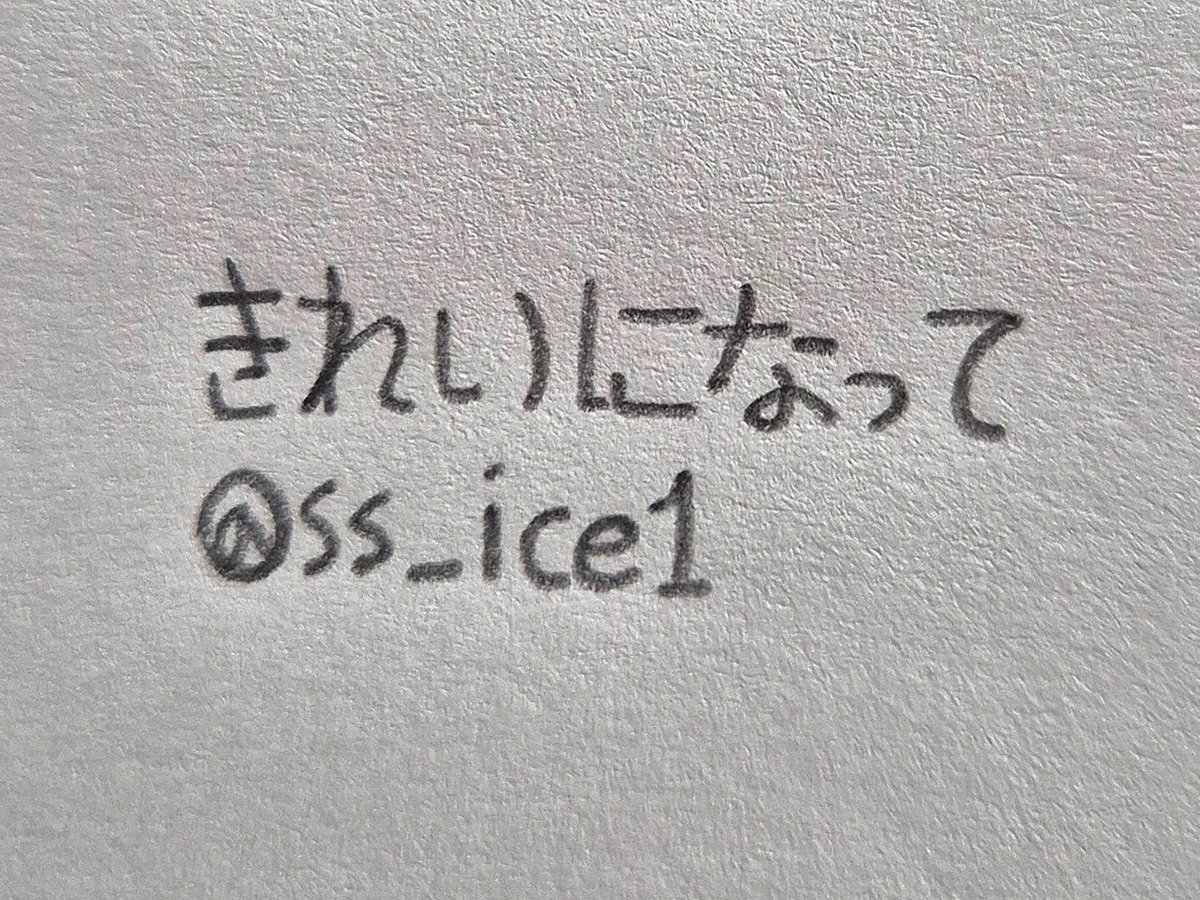 きれいになって
@ss_ice1